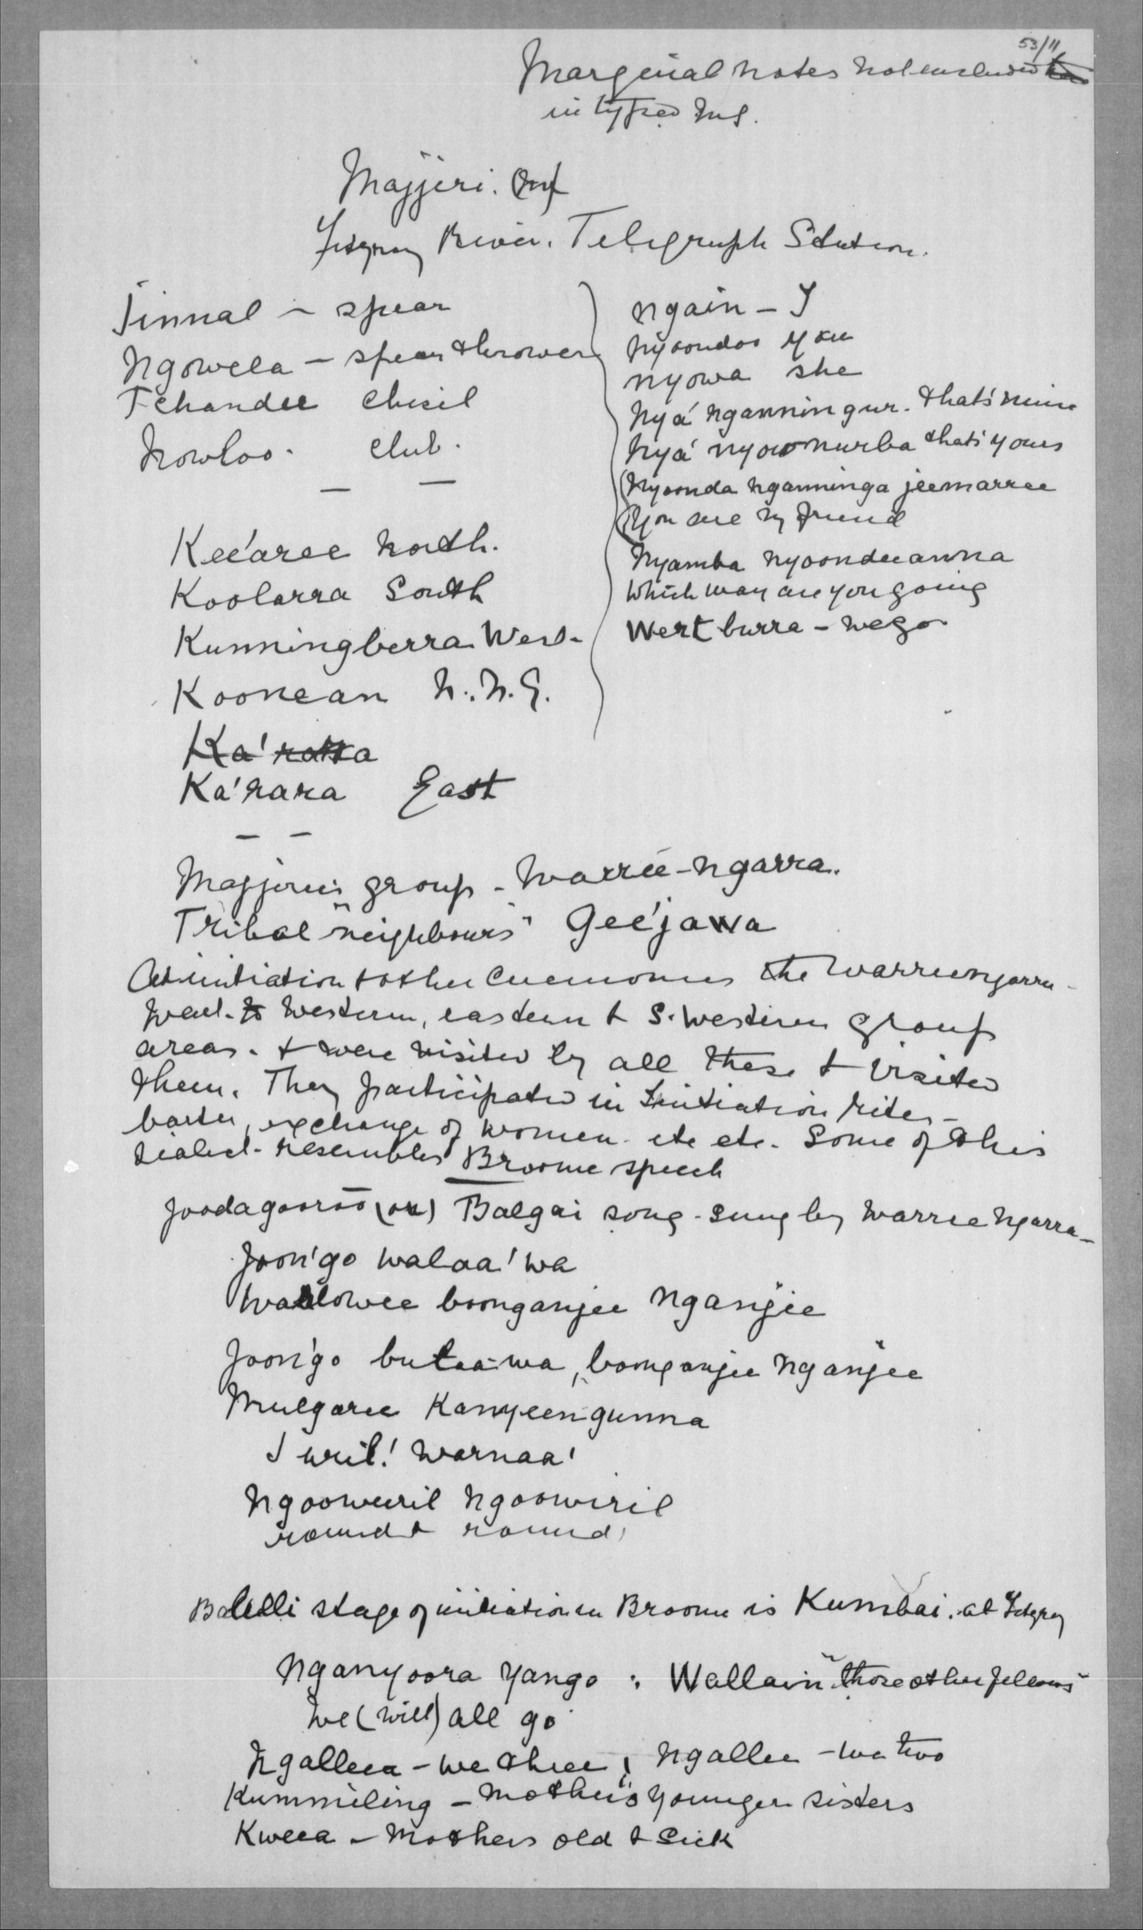 53/11
Marginal notes not included
in typed MS.
Majjeri.
Fitzroy River. Telegraph Station.
Jinnal - spear
Ngowela - spear thrower
Tchandee chisel
Nowloo. club.
Kee'aree North.
Koolarra South
Kunningberra West.
Koonean N.N.E.
Ka'rara
Ka'rara East
ngain - I
nyoondoo you
nyowa she
nya' nganningur. that's mine
nya' nyoonurba that's yours
Nyoonda nganninga jeemarree
You are my friend
Nyamba nyoondeeanna
Which way are you going
Wert burra - we go
Majjeri's group - Warree-ngarra.
Tribal "neighbours" Gee'jawa
At initiation & other ceremonies the Warreengarra
went to western, eastern & S. western group
areas. & were visited by all these & visited
them. They participated in initiation rites -
barter, exchange of women etc etc. Some of this
dialect resembles Broome speech
Joodagooroo (or) Balgai song - sung by Warree Ngarra -
Joon'go walaa'wa
Wallowee boonganjee nganjee
Joon'go butaa-wa, boonganjee nganjee
Mulgaree Kanyeengunna
J uril! Warnaa'
Ngooweeril Ngoowiril
round & round
Balelli stage of initiation in Broome is Kumbai. at Fitzroy
Nganyoora yango : Wallain "those other fellows"
We (will) all go
Ngalleea - we three, Ngallee - we two
Kummeling - Mother's younger sisters
Kweea - Mothers old & sick